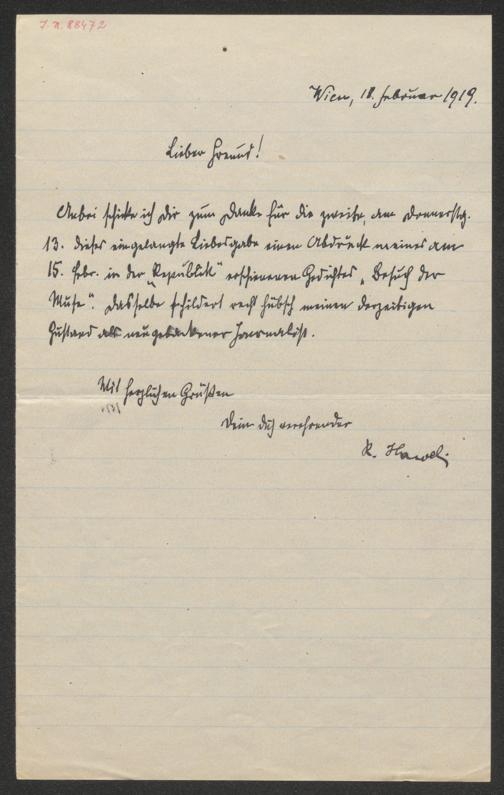 J.N. 88472
Wien, 18. Februar 1919.
Lieber Freund!
Anbei schicke ich Dir zum Danke für die zweite, am Donnerstg.
13. dieses eingelangte Liebesgabe einen Abdruck meines am
15. Febr. in der "Republik" erschienenen Gedichtes „Besuch der
Muse“. Dasselbe schildert recht hübsch meinen derzeitigen
Zustand als neugebackener Journalist.
Mit herzlichen Grüßen
Dein Dich verehrender
R. Hawel